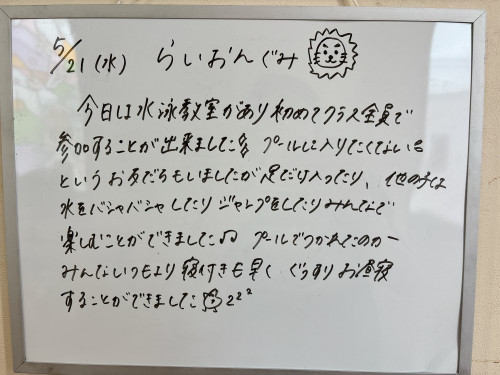 5/21(水) らいおんぐみ
今日は水泳教室があり初めてクラス全員で
参加することが出来ました プールに入りたくない
というお友だちもいましたが足だけ入ったり、他の子は
水をバシャバシャしたりジャンプをしたりみんなで
楽しむことができました♫ プールでつかれたのか
みんないつもより寝付きも早く ぐっすりお昼寝
することができました zzz